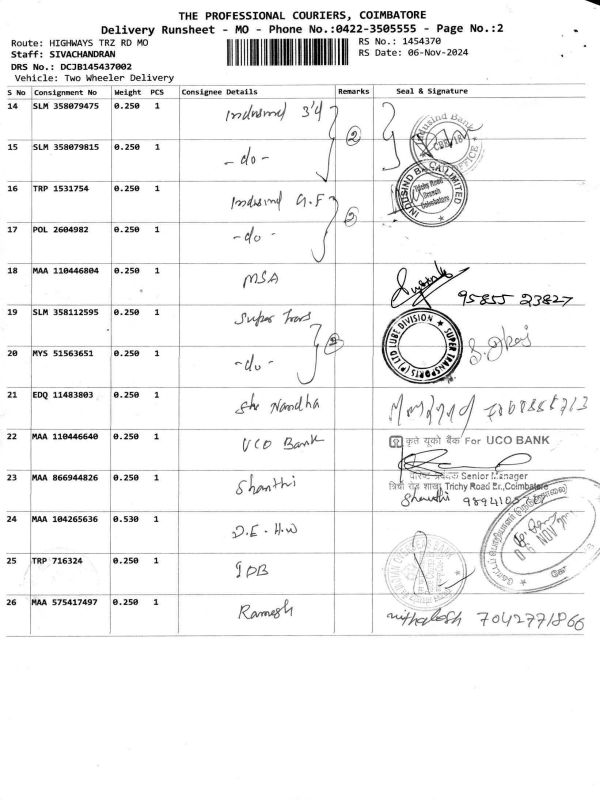 THE PROFESSIONAL COURIERS, COIMBATORE
Delivery Runsheet - MO - Phone No.:0422-3505555 - Page No.:2
Route: HIGHWAYS TRZ RD MO RS No.: 1454370
Staff: SIVACHANDRAN RS Date: 06-Nov-2024
DRS No.: DCJB145437002
Vehicle: Two Wheeler Delivery
S No Consignment No Weight PCS Consignee Details Remarks Seal & Signature
14 SLM 358079475 0.250 1 Indusind 3'rd 2
15 SLM 358079815 0.250 1 -do-
16 TRP 1531754 0.250 1 Indusind G.F INDUSIND BANK LIMITED Trichy Road Branch Coimbatore
17 POL 2604982 0.250 1 -do-
18 MAA 110446804 0.250 1 MSA 95855 23827
19 SLM 358112595 0.250 1 Super Trans SUPER TRANSPORTS (P) LTD LUBE DIVISION
20 MYS 51563651 0.250 1 -do-
21 EDQ 11483803 0.250 1 Sri Nandha
22 MAA 110446640 0.250 1 UCO Bank कृते यूको बैंक For UCO BANK
Senior Manager
Trichy Road Br.,Coimbatore
23 MAA 866944826 0.250 1 Shanthi Shanthi
24 MAA 104265636 0.530 1 D.E.H.W
25 TRP 716324 0.250 1 IOB
26 MAA 575417497 0.250 1 Ramesh 7042771866